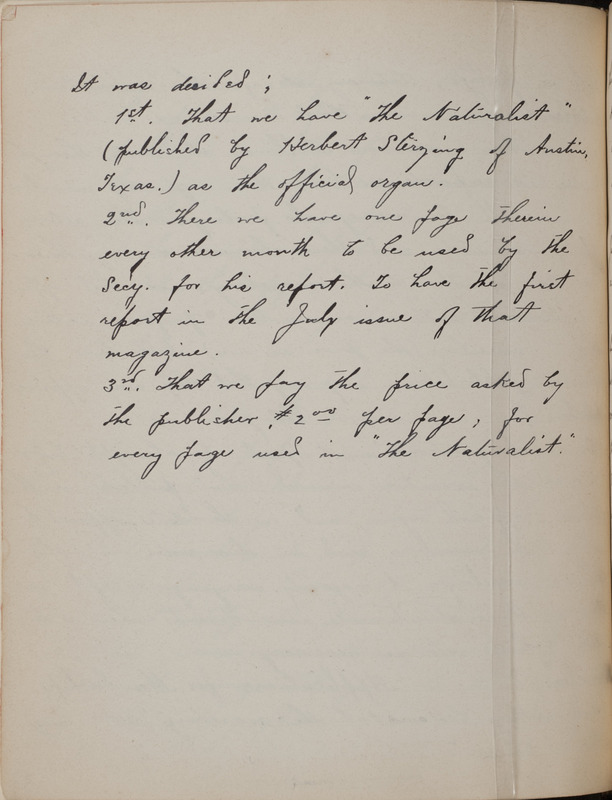 It was decided;
1st. That we have "The Naturalist"
(published by Herbert Sterzing of Austin,
Texas.) as the official organ.
2nd. There we have one page therein
every other month to be used by the
Secy. for his report. To have the first
report in the July issue of that
magazine.
3rd. That we pay the price asked by
the publisher, $2.00 per page, for
every page used in "The Naturalist."